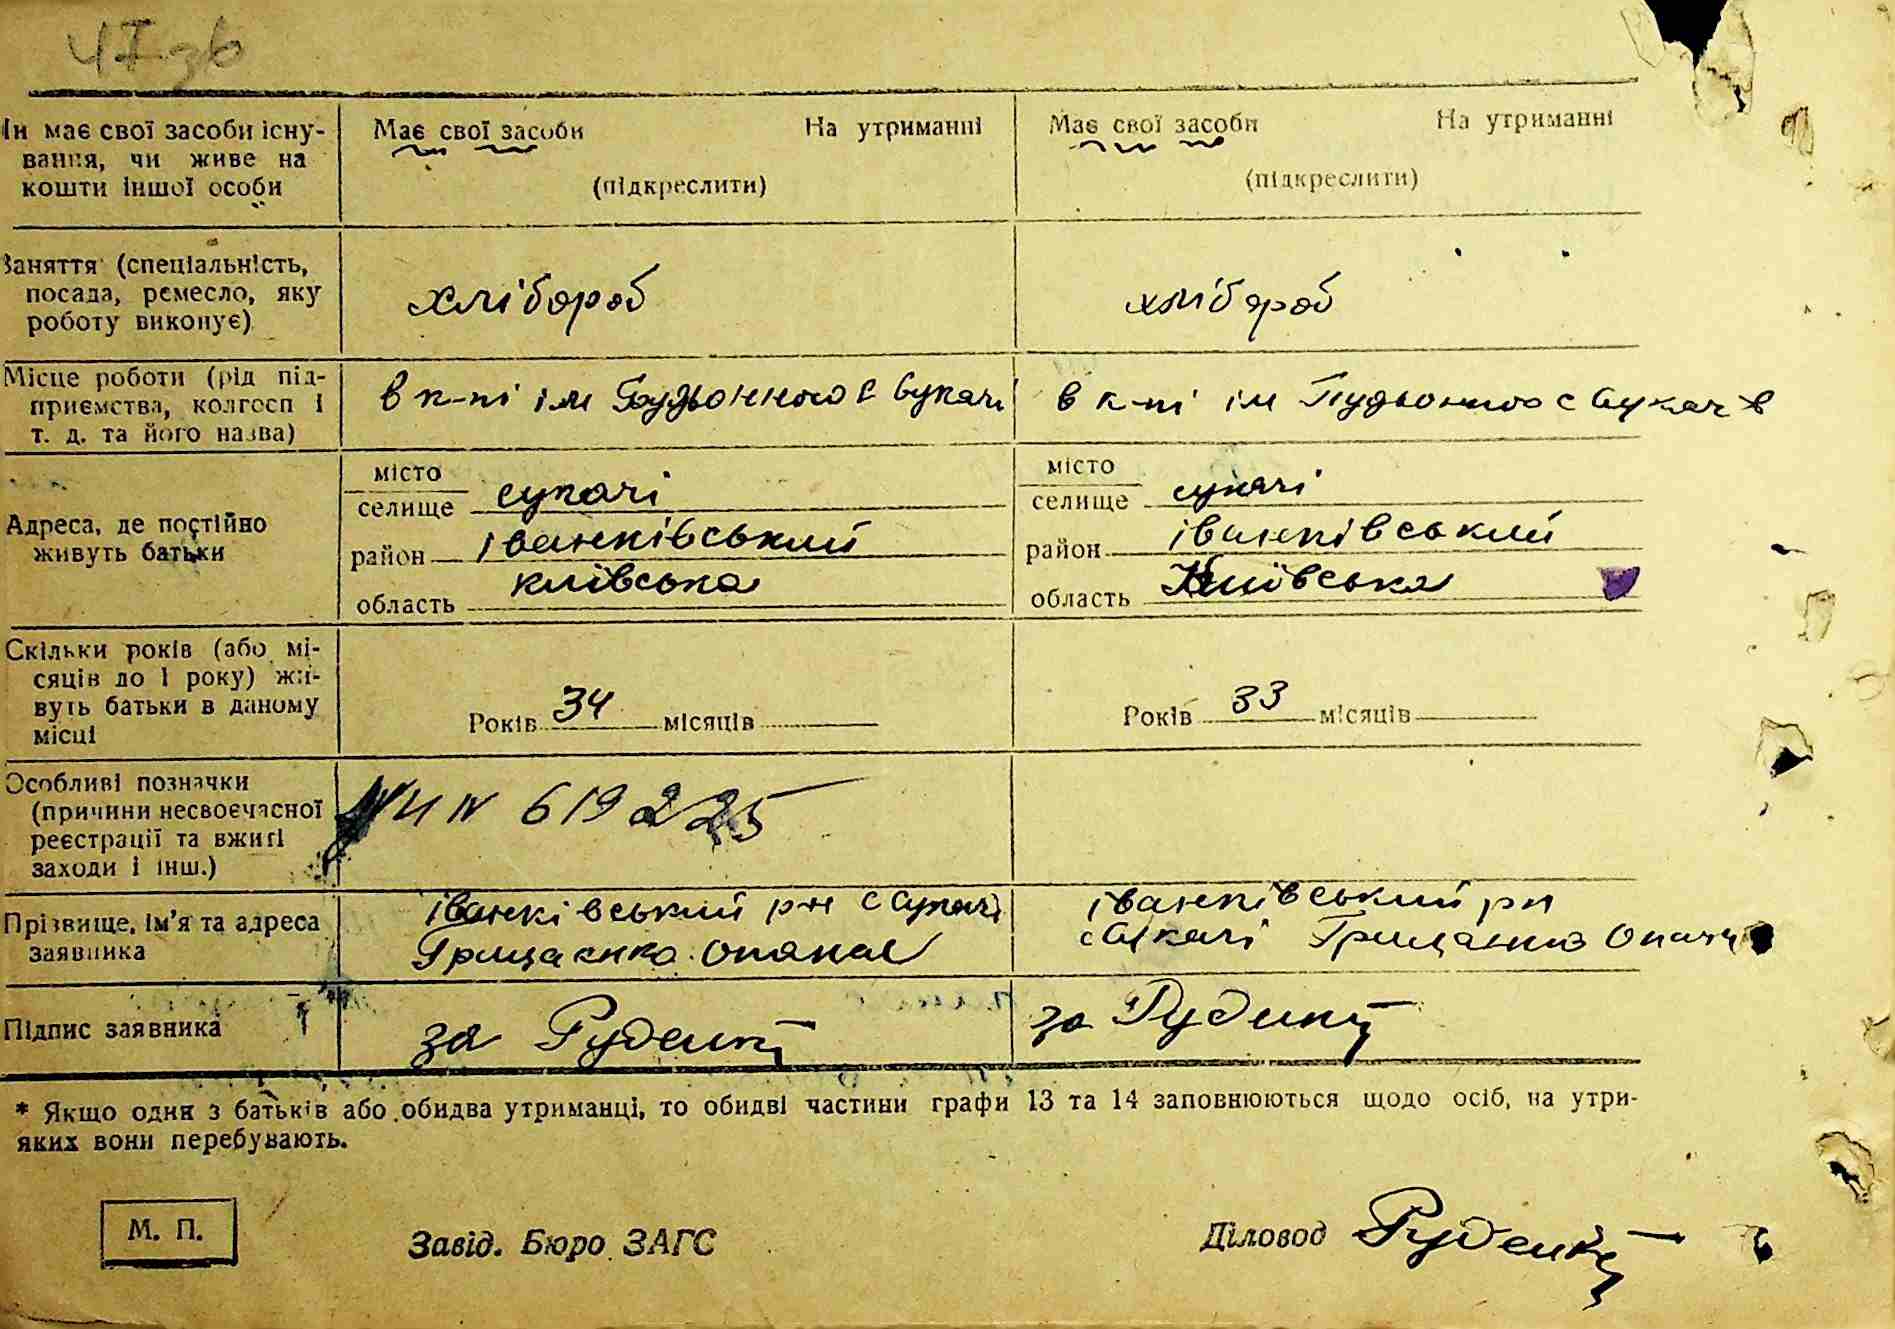 Чи має свої засоби існу-
вання, чи живе на
кошти іншої особи
Має свої засоби На утриманні
(підкреслити)
Має свої засоби На утриманні
(підкреслити)
Заняття (спеціальність,
посада, ремесло, яку
роботу виконує)
хлібороб
хлібороб
Місце роботи (рід під-
приємства, колгосп і
т. д. та його назва)
в к-пі ім Будьонного с Сукачі
в к-пі ім Будьонного с Сукачів
Адреса, де постійно
живуть батьки
місто
селище сукачі
район іванківський
область київська
місто
селище сукачі
район іванківський
область Київська
Скільки років (або мі-
сяців до 1 року) жи-
вуть батьки в даному
місці
Років 34 місяців
Років 33 місяців
Особливі позначки
(причини несвоєчасної
реєстрації та вжиті
заходи і інш.)
619225
Прізвище, ім'я та адреса
заявника
іванківський р-н с Сукачі
Грищенко Опанас
іванківський рн
с Сукачі Грищенко
Підпис заявника
за Руденко
за Руденко
* Якщо один з батьків або обидва утриманці, то обидві частини графи 13 та 14 заповнюються щодо осіб, на утри-
яких вони перебувають.
М. П.
Завід. Бюро ЗАГС
Діловод Руденко